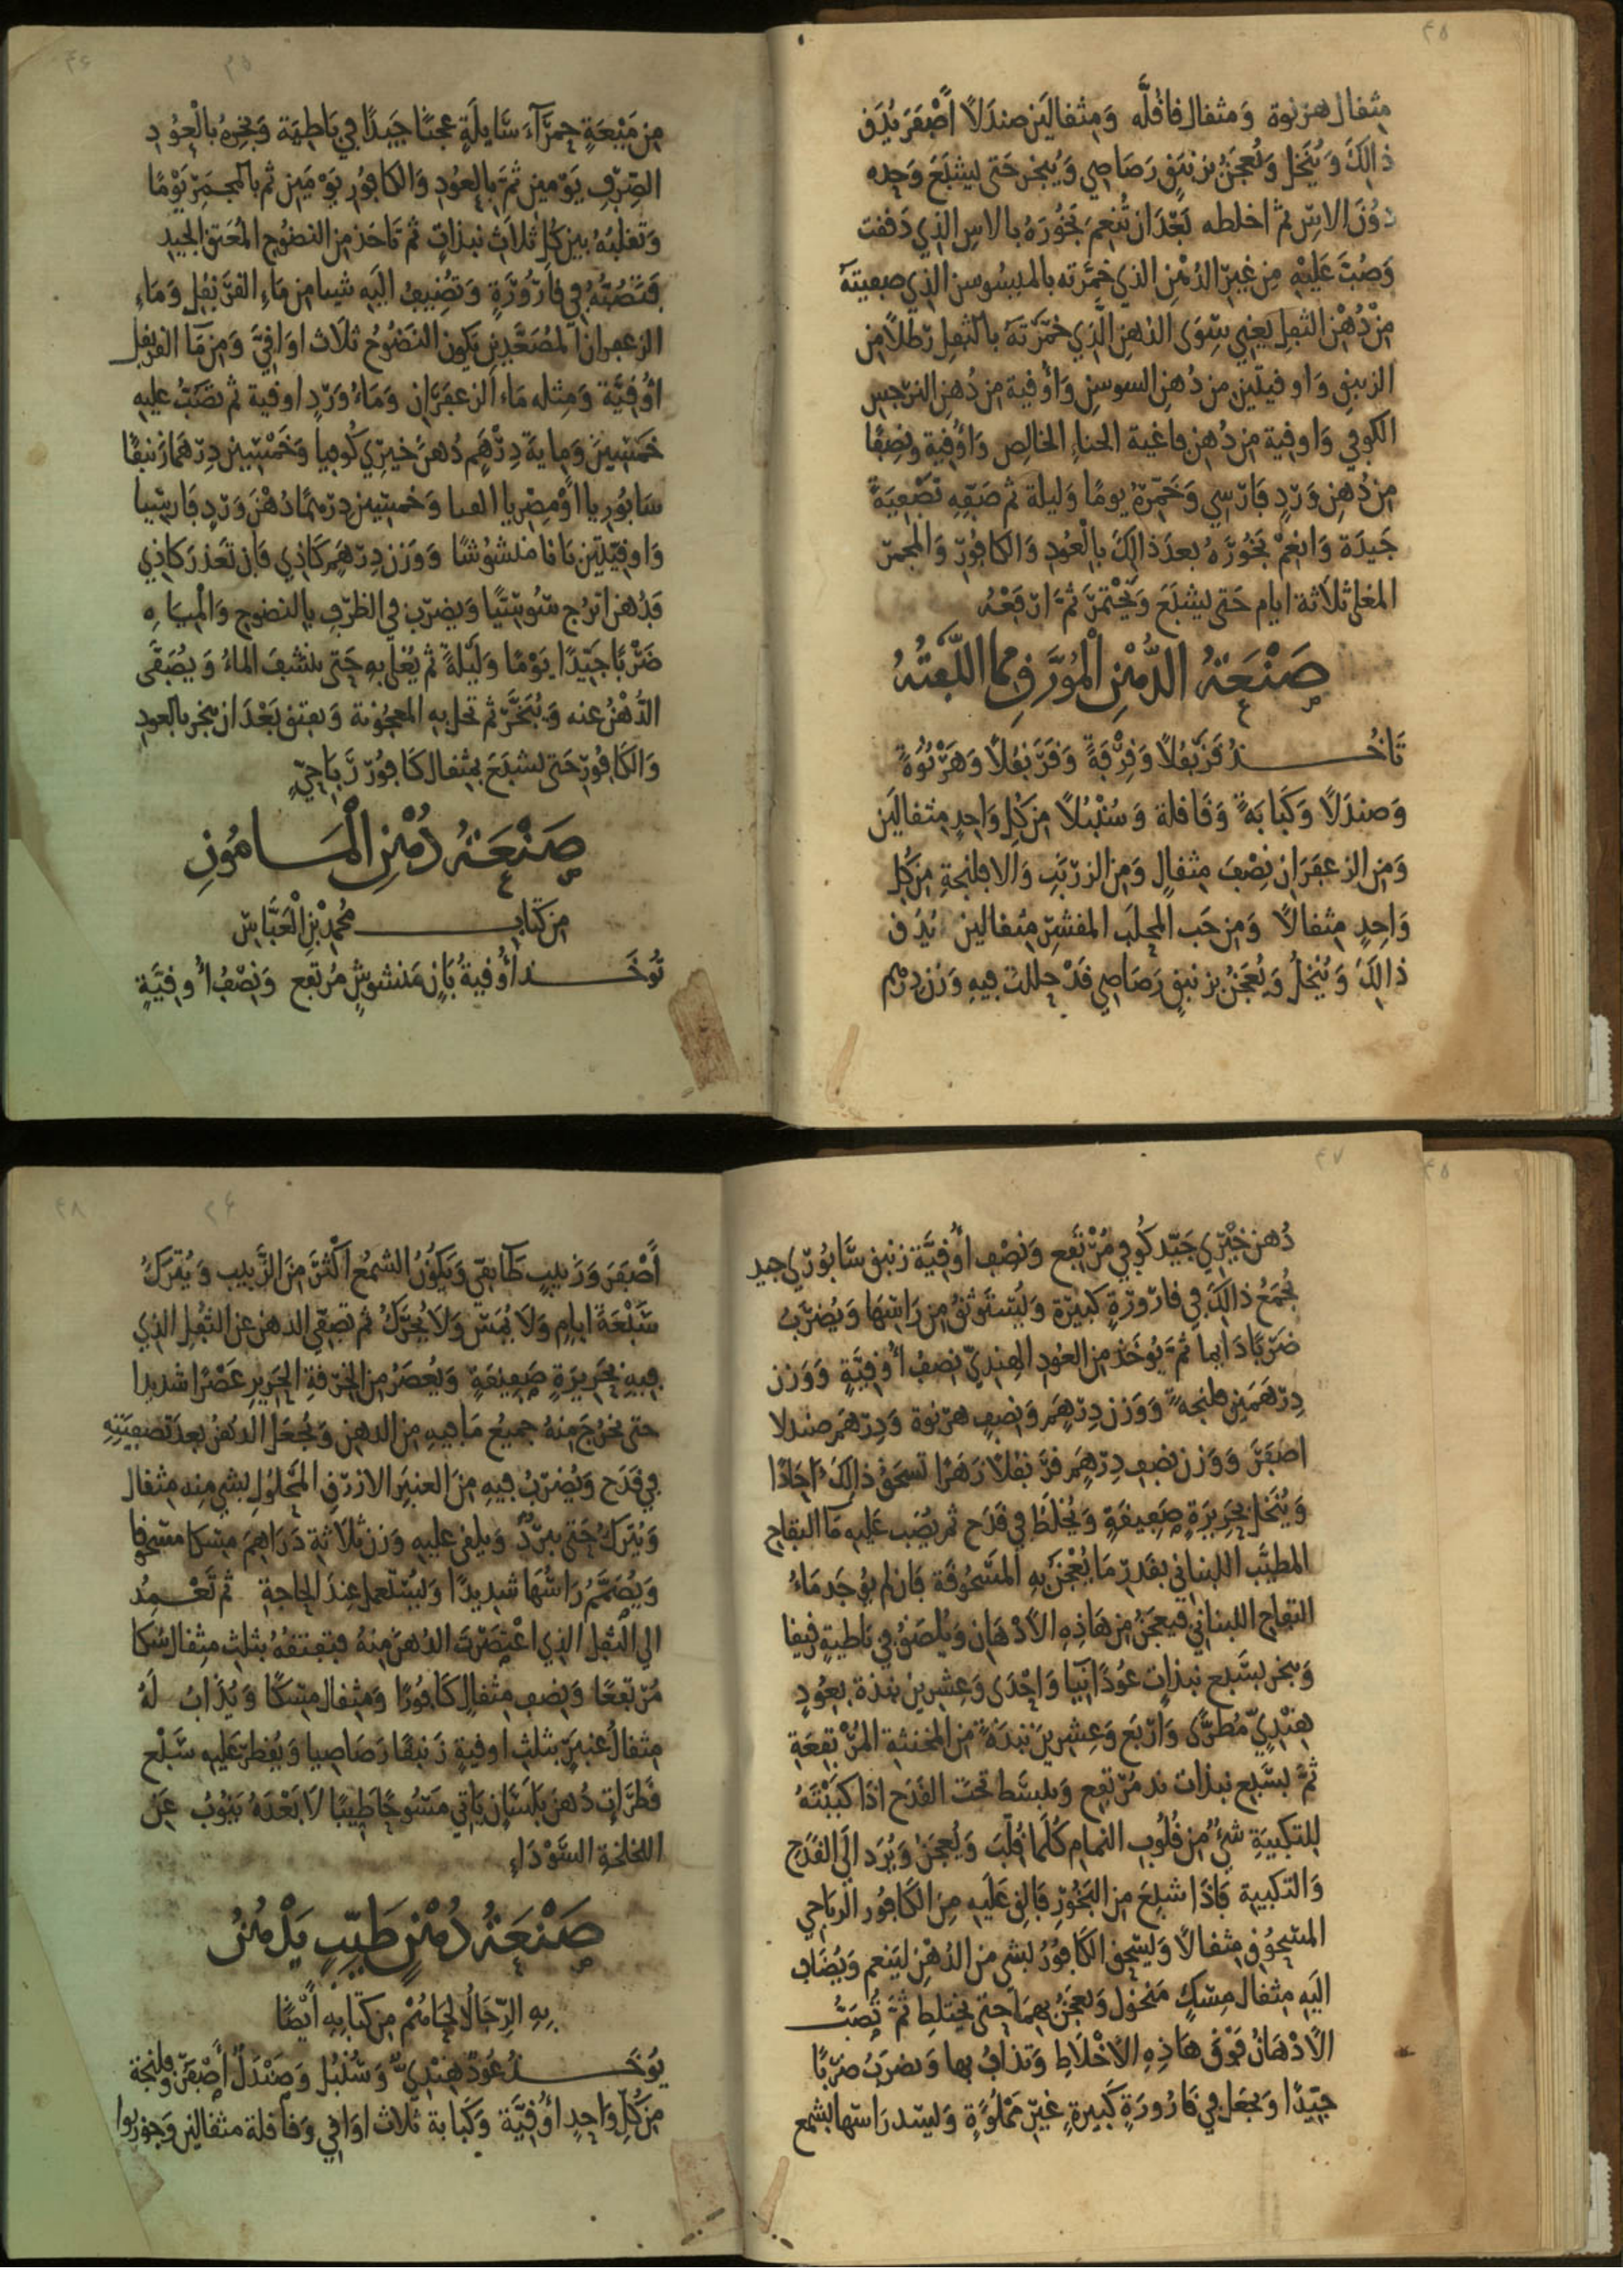 ٤٥
مثقال هرنوة ومثقال قاقلّه ومثقالين صندلًا أصفر يُدَق
ذالك ويُنخل ويُعجن بزنبق رصاصي ويُبخر حتى يشبع وحده
دون الاس ثم اخلطه بعد ان تُنعم بخوره بالاس الذي دققت
وصُبّ عليه من غير الدهن الذي خمّرته بالميسوسن الذي صفيته
من دُهن الثفل يعني سوى الدهن الذي خمّرته بالثفل رطلًا من
الزنبق واوقيتين من دُهن السوسن وأوقية من دُهن النرجس
الكوفي واوقية من دُهن فاغية الحناء الخالص وأوقية ونصفًا
من دُهن ورد فارسي وخمّره يومًا وليلة ثم صفّه تصفيةً
جيدة وانعم بخوره بعد ذالك بالعود والكافور والمجمر
المغلى ثلاثة ايام حتى يشبع ويختمر ثم ارفعه
صنعة الدهن المورّق مما اللّفته
تاخذ قرنفلًا وقرفةً وقرنفلًا وهرنوةً
وصندلًا وكبابةً وقاقلة وسُنبلًا من كل واحد مثقالين
ومن الزعفران نصف مثقال ومن الزرنب والافلنجة من كل
واحد مثقالًا ومن حَب المحلب المقشر مثقالين يُدق
ذالك ويُنخل ويُعجن بزنبق رصاصي قد حللت فيه وزن درهم
٤٦
من مَيعةٍ حمرآءَ سايلةٍ عجنًا جيدًا في باطية وتبخره بالعود
الصِرف يومين ثم بالعود والكافور يومين ثم بالمجمر يومًا
وتقلبه بين كل ثلاث نبذات ثم تاخذ من النضوح المعتق الجيد
فتصبّه في قارورة وتضيف اليه شيا من مَاء القرنفل ومَاء
الزعفران المصعّدين يكون النضوح ثلاث اواقي ومن مَا القرنفل
أوقيّة ومثله مَاء الزعفران ومَاء ورد اوقية ثم تصُبّ عليه
خمسين وماية درهم دُهن خيري كوفيا وخمسين درهما زنبقًا
سابُوريا أو مصريا وخمسين درهمًا دُهن ورد فارسيا
واوقيتين بانا منشوشًا ووزن درهم كاذي فان تعذر كاذي
فدُهن اترج سوسيًّا ويضرب في الظرف بالنضوح والمياه
ضربًا جيّدًا يومًا وليلةً ثم يُغلا به حتى ينشف الماءُ ويُصَفّى
الدُهنُ عنه ويُبخّر ثم تحل به المعجونة ويفتق بعد ان يبخر بالعود
والكافور حتى يشبع بمثقال كافور رباحيّ
صنعة دُهن المامون
من كتاب محمد بن العبّاس
تُوخذ أوقيةُ بان منشوش مُرتفع ونصفُ أوقيّة
٤٧
دُهن خيري جيّد كوفي مُرتفع ونصف أوقيّة زنبق سابوري جيد
يُجمع ذالك في قارورة كبيرة ويُستوثق من راسها ويُضرب
ضربًا دايما ثم يُوخذ من العود الهندي نصف أوقيّة ووزن
درهمين فلنجةً ووزن درهم ونصف هرنوة ودرهم صندلا
اصفر ووزن نصف درهم قرنفلًا زهرًا تسحق ذالك احادًا
ويُنخل بحريرة صفيقة ويُخلط في قدح ثم يُصب عليه مَا التفاح
المطيّب اللبناني بقدر مَا يُعجن به المسحوقة فان لم يوجد مَاءُ
التفاح اللبناني فيعجن من هاذه الادهان ويُلصق في باطية رقيقا
ويبخر بسبع نبذات عودًا نيّا واحدى وعشرين نبذة بعُود
هنديّ مُطرّى واربع وعشرين نبذةً من المخنثة المرتفعة
ثمّ بسبع نبذات ند مُرتفع ويبسط تحت القدح اذا كببته
للتكبية شيٌ من قلوب النمام كلما قُلّبَ ويُعجن ويُرد الى القدح
والتكبية فاذا شبع من البخور فالق عليه من الكافور الرباحي
المسحوق مثقالًا وليسحق الكافور بشي من الدهن لينعم ويُضاف
اليه مثقال مسك منخول ويُعجن بهما حتى يختلط ثم تُصبّ
الادهان فوق هاذه الاخلاط وتذاف بها ويضرب ضربًا
جيّدًا ويجعل في قارورة كبيرة غير مملوّة وليسد راسها بشمع
٤٨
أصفر وزبيب طايفي ويكون الشمع اكثر من الزبيب ويُترك
سبعة ايام ولا يُمس ولا يُحرك ثم تصفّي الدهن عن الثفل الذي
فيه بحريرة صفيقة ويُعصر من الخرقة الحرير عصرًا شديدا
حتى يخرج منه جميع مَا فيه من الدهن ويُجعل الدهن بعد تصفيته
في قدح ويُضرب فيه من العنبر الازرق المحلول بشي منه مثقال
ويُترك حتى يبرد ويلقى عليه وزن ثلاثة دراهم مسكا مسحوقا
ويُصمّم راسها شديدًا ويُستعمل عند الحاجة ثم تعمدُ
الى الثفل الذي اعتصرت الدهن منه فتفتقه بثلث مثقال سُكا
مُرتفعًا ونصف مثقال كافورًا ومثقال مسكًا ويُذاب لهُ
مثقالُ عنبر بثلث اوقية زنبقًا رصاصيا ويُقطر عليه سبع
قطرات دُهن بلسان ياتي مَسُوحًا طيبًا لا بعده ينوب عن
اللخلخة السّوداء
صنعة دُهن طيّبٍ يدّهن
به الرّجال لحامهم من كتابه أيضًا
يوخذ عُود هنديّ وسُنبل وصندل أصفر وفلنجة
من كل واحد أوقيّة وكبابة ثلاث اواقي وقاقلة مثقالين وجوزبوا